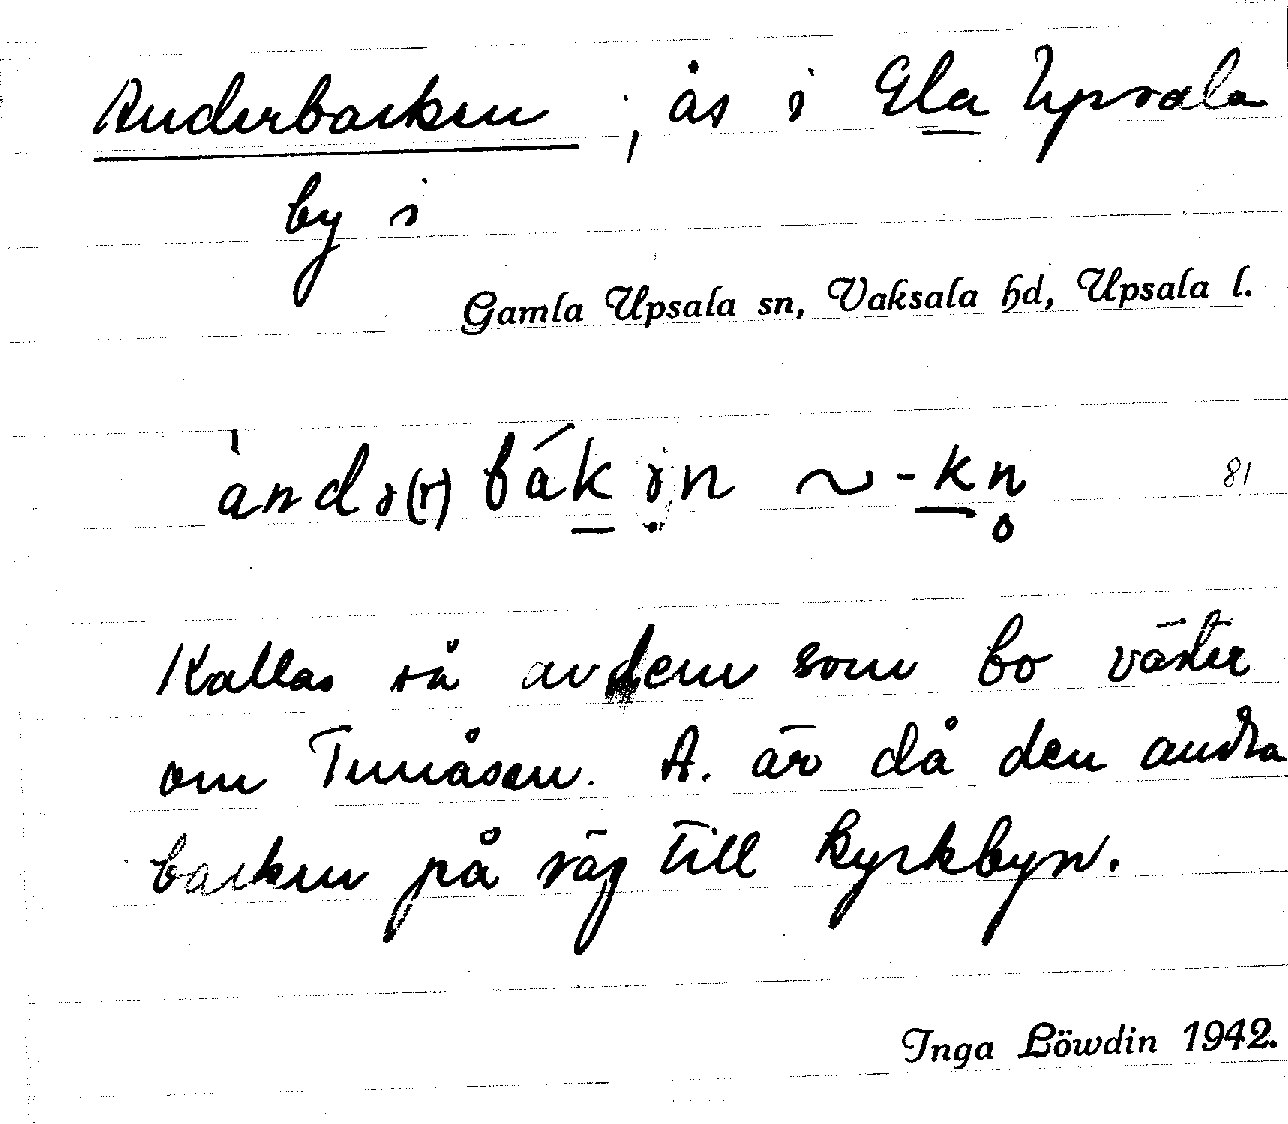 Anderbacken, ås i Gla Upsala
by i
Gamla Upsala sn, Vaksala hd, Upsala l.
àndə(r)bák ən ~ -kn̥ 81
Kallas så av dem som bo väster
om Tunåsen. A. är då den andra
backen på väg till kyrkbyn.
Inga Löwdin 1942.